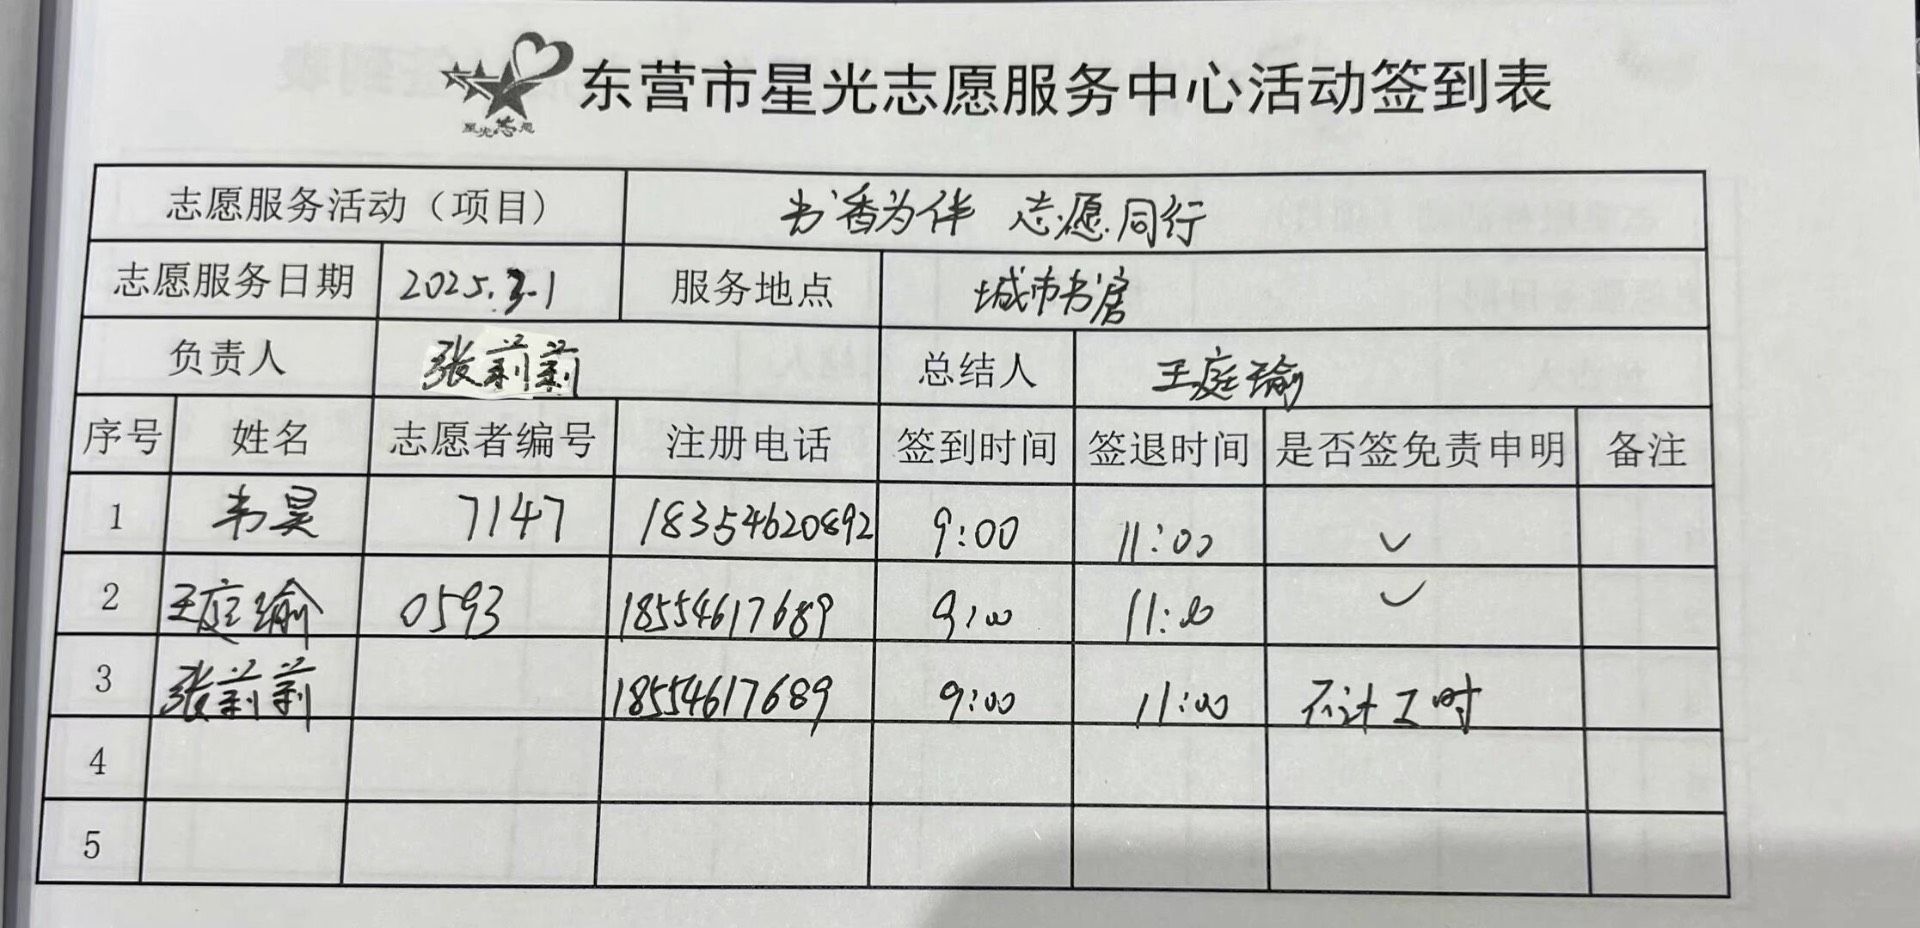 星光志愿
东营市星光志愿服务中心活动签到表
志愿服务活动（项目） 书香为伴 志愿同行
志愿服务日期 2025.3.1 服务地点 城市书房
负责人 张莉莉 总结人 王庭瑜
序号 姓名 志愿者编号 注册电话 签到时间 签退时间 是否签免责申明 备注
1 韦昊 7147 18354620892 9:00 11:00 ✓
2 王庭瑜 0593 18554617689 9:00 11:00 ✓
3 张莉莉 18554617689 9:00 11:00 不计工时
4
5